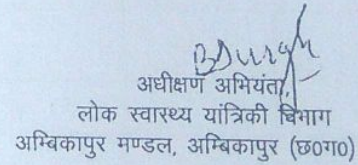 अधीक्षण अभियंता,
लोक स्वास्थ्य यांत्रिकी विभाग
अम्बिकापुर मण्डल, अम्बिकापुर (छ०ग०)